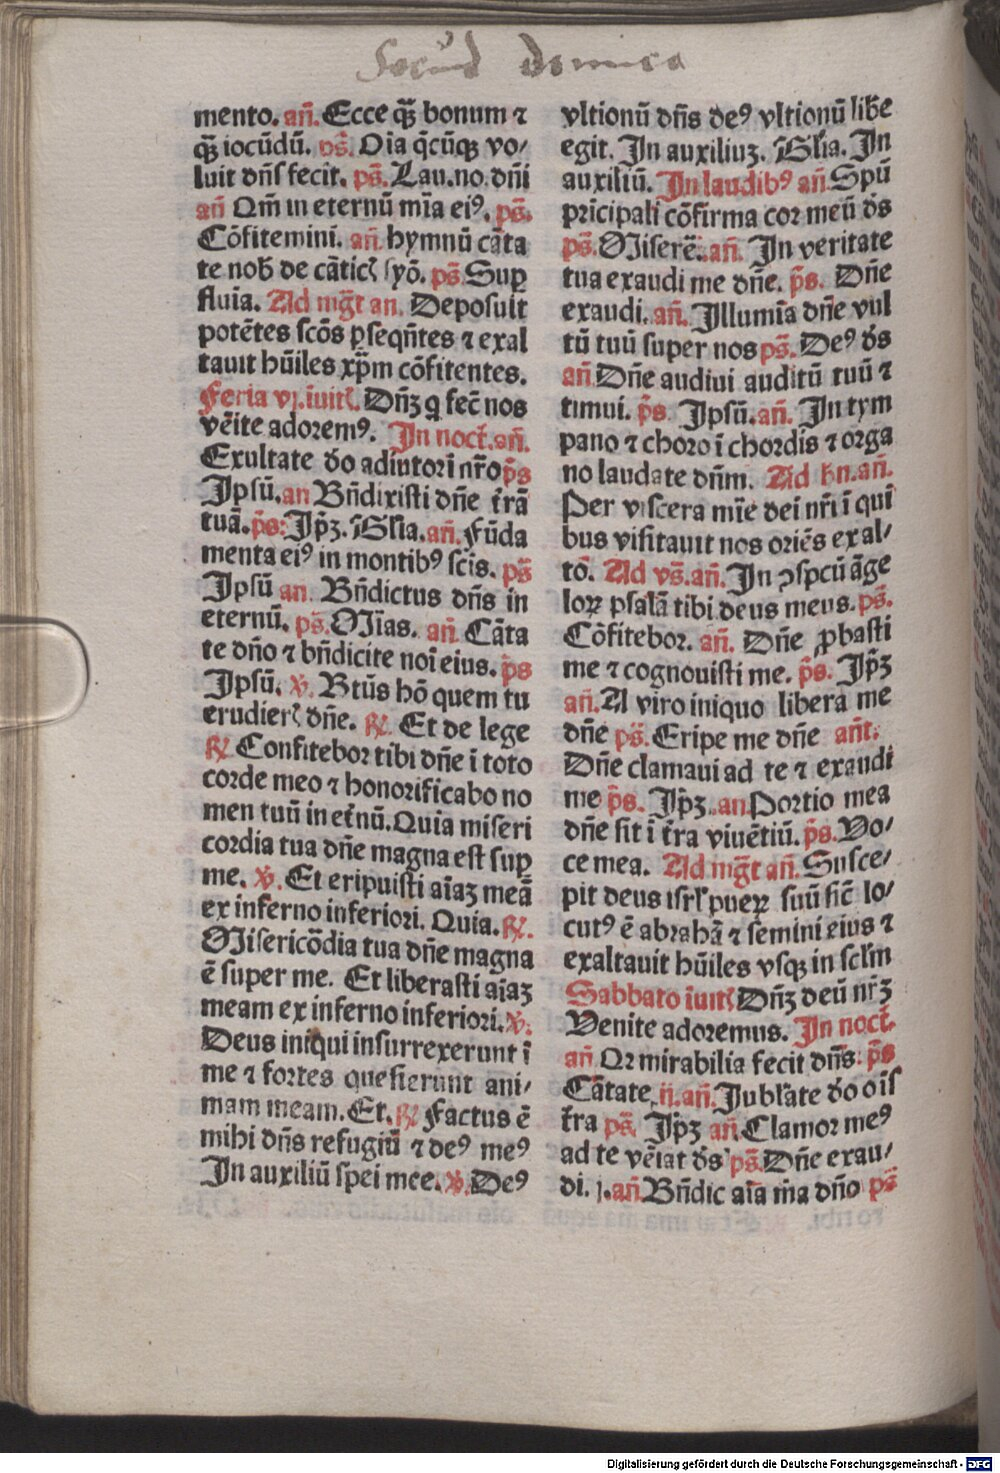 Secūd domica
mento. an̄. Ecce q̄ȝ bonum ⁊
q̄ȝ iocūdū. vs̄. Oīa q̄cūqȝ vo⸗
luit dn̄s fecit. ps̄. Lau.no.dn̄i
an̄ Qm̄ in eternū mīa eiꝰ. ps̄.
Cōfitemini. an̄. hymnū cāta
te nob̄ de cāticꝭ syō. ps̄. Suꝑ
fluīa. Ad mḡt an. Deposuit
potētes scōs ꝑseqn̄tes ⁊ exal
tauit hūiles xp̄m cōfitentes.
Feria vj. īuitꝭ. Dn̄ȝ q fec̄ nos
vēite adoremꝰ. In noct̄. an̄.
Exultate do adiutori nr̄o p̄s
Ipsū. an Bn̄dixisti dn̄e t̄rā
tuā. p̄s: Ip̄ȝ. Gl̄ia. an̄. Fūda
menta eiꝰ in montibꝰ scīs. ps̄
Ipsū an. Bn̄dictus dn̄s in
eternū. ps̄. Mīas. an̄. Cāta
te dn̄o ⁊ bn̄dicite noī eius. p̄s
Ipsū. ℣. Btūs hō quem tu
erudierꝭ dn̄e. ℟. Et de lege
℟ Confitebor tibi dn̄e ī toto
corde meo ⁊ honorificabo no
men tuū in et̄nū. Quia miseri
cordia tua dn̄e magna est suꝑ
me. ℣. Et eripuisti aīaȝ meā
ex inferno inferiori. Quia. ℟.
Misericōdia tua dn̄e magna
ē super me. Et liberasti aīaȝ
meam ex inferno inferiori. ℣.
Deus iniqui insurrexerunt ī
me ⁊ fortes quesierunt ani⸗
mam meam. Et. ℟ Factus ē
mihi dn̄s refugiū ⁊ deꝰ meꝰ
In auxiliū spei mee. ℣. Deꝰ
vltionū dn̄s deꝰ vltionū lib̄e
egit. In auxiliuȝ. Gl̄ia. In
auxiliū. In laudibꝰ an̄. Spū
pricipali cōfirma cor meū ds̄
ps̄. Miserē. an̄. In veritate
tua exaudi me dn̄e. p̄s. Dn̄e
exaudi. an̄. Illumīa dn̄e vul
tū tuū super nos ps̄. Deꝰ ds̄
an̄. Dn̄e audiui auditū tuū ⁊
timui. p̄s. Ipsū. an̄. In tym
pano ⁊ choro ī chordis ⁊ orga
no laudate dn̄m. Ad bn̄. an̄.
Per viscera mīe dei nr̄i ī qui
bus visitauit nos oriēs ex al⸗
tō. Ad vs̄. an̄. In ꝯspcū āge
loꝝ psalā tibi deus meus. ps̄.
Cōfitebor. an̄. Dn̄e ꝓbasti
me ⁊ cognouisti me. p̄s. Ip̄ȝ
an̄. A viro iniquo libera me
dn̄e ps̄. Eripe me dn̄e an̄t.
Dn̄e clamaui ad te ⁊ exaudi
me p̄s. Ip̄ȝ. an. Portio mea
dn̄e sit ī t̄ra viuētiū. p̄s. Vo⸗
ce mea. Ad mḡt an̄. Susce⸗
pit deus isrl̄ pueꝝ suū sic̄ lo⸗
cutꝰ ē abrahā ⁊ semini eius ⁊
exaltauit hūiles vsqȝ in scl̄m
Sabbato īuitꝭ Dn̄ȝ deū nr̄ȝ
Venite adoremus. In noct̄.
an̄ Qr mirabilia fecit dn̄s. p̄s
Cātate. ij. an̄. Jubl̄ate do oīs
t̄ra ps̄. Ip̄ȝ an̄. Clamor meꝰ
ad te vēiat ds̄ ps̄. Dn̄e exau⸗
di. j. an̄. Bn̄dic aīa m̄a dn̄o ps̄
Digitalisierung gefördert durch die Deutsche Forschungsgemeinschaft - DFG